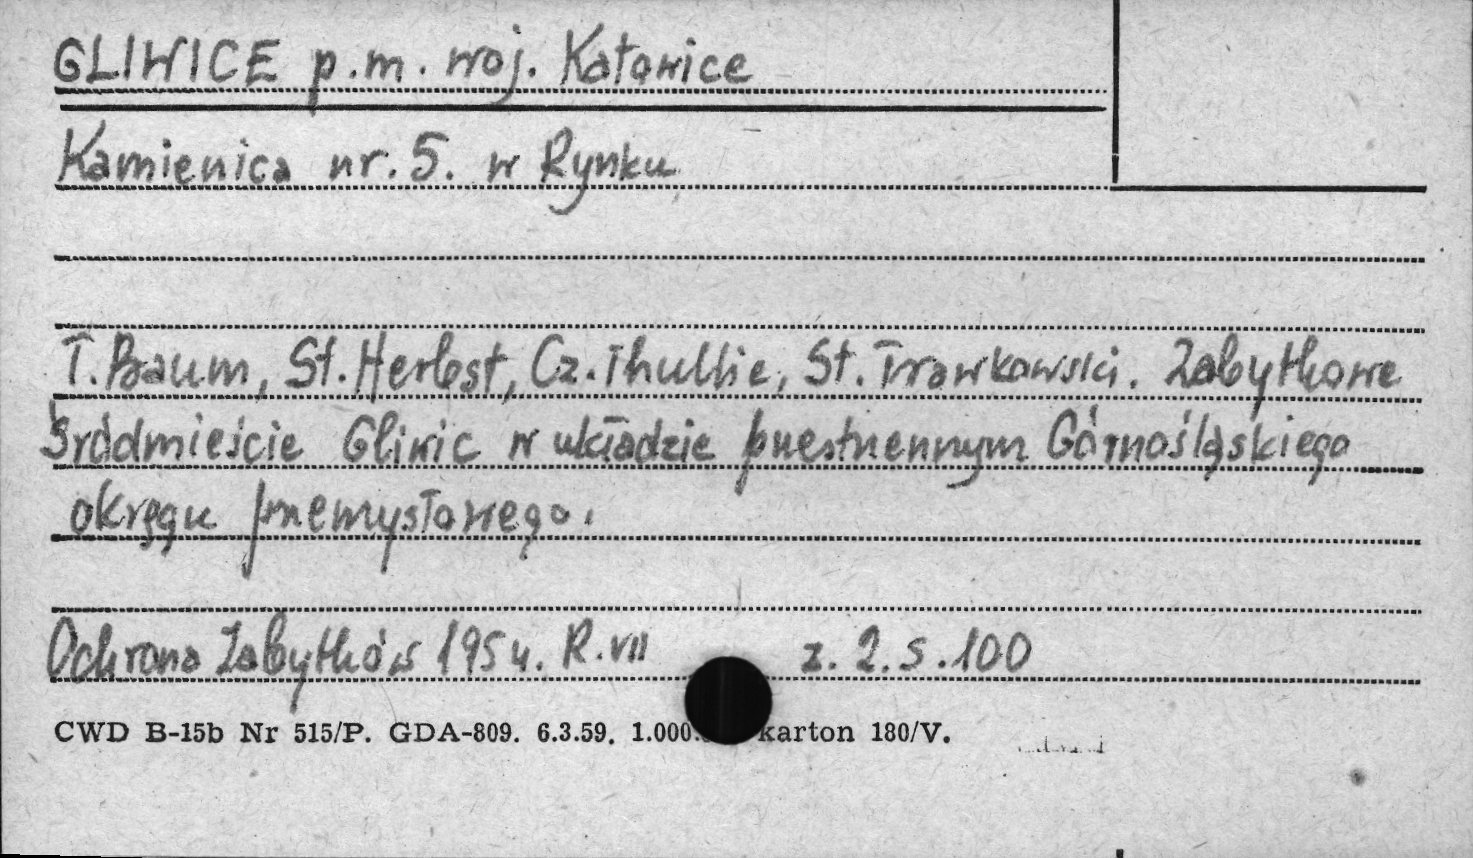 GLIWICE p.m. woj. Katowice
Kamienica nr. 5. w Rynku
T. Baum, St. Herbst, Cz. Thullie, St. Trawkowski. Zabytkowe
Śróddmieście Gliwic w układzie przestrzennym Górnośląskiego
okręgu przemysłowego.
Ochrona Zabytków 1954. R. VII z. 2. s. 100
CWD B-15b Nr 515/P. GDA-809. 6.3.59. 1.000. karton 180/V.